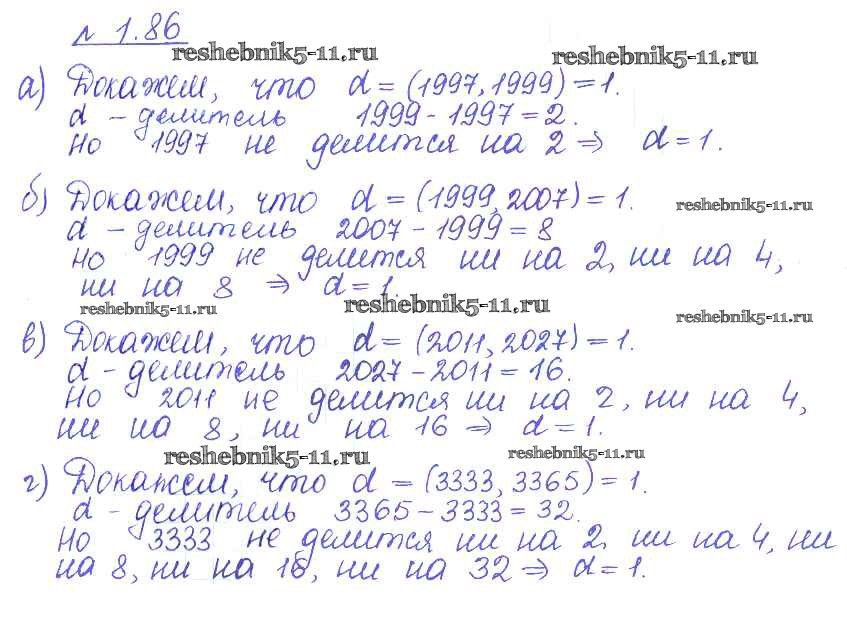 № 1.86
reshebnik5-11.ru reshebnik5-11.ru
а) Докажем, что d = (1997, 1999) = 1.
d - делитель 1999 - 1997 = 2.
Но 1997 не делится на 2 ⇒ d = 1.
б) Докажем, что d = (1999, 2007) = 1. reshebnik5-11.ru
d - делитель 2007 - 1999 = 8
Но 1999 не делится ни на 2, ни на 4,
ни на 8 ⇒ d = 1.
reshebnik5-11.ru reshebnik5-11.ru reshebnik5-11.ru
в) Докажем, что d = (2011, 2027) = 1.
d - делитель 2027 - 2011 = 16.
Но 2011 не делится ни на 2, ни на 4,
ни на 8, ни на 16 ⇒ d = 1.
reshebnik5-11.ru reshebnik5-11.ru
г) Докажем, что d = (3333, 3365) = 1.
d - делитель 3365 - 3333 = 32.
Но 3333 не делится ни на 2, ни на 4, ни
на 8, ни на 16, ни на 32 ⇒ d = 1.